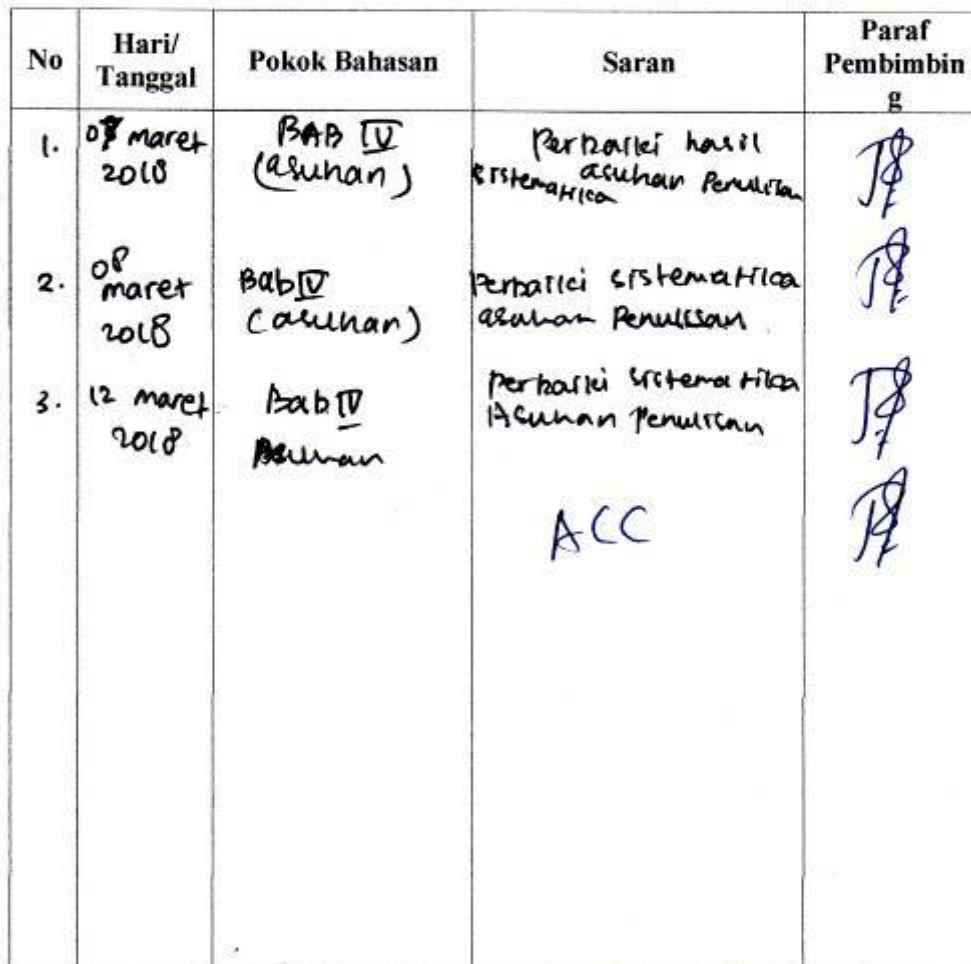 No Hari/ Tanggal Pokok Bahasan Saran Paraf Pembimbin g
1. 07 maret 2018 BAB IV (asuhan) Perbaiki hasil asuhan Penulisan sistematika
2. 08 maret 2018 Bab IV (asuhan) Perbaiki sistematika asuhan Penulisan
3. 12 maret 2018 Bab IV Asuhan Perbaiki sistematika Asuhan Penulisan
ACC